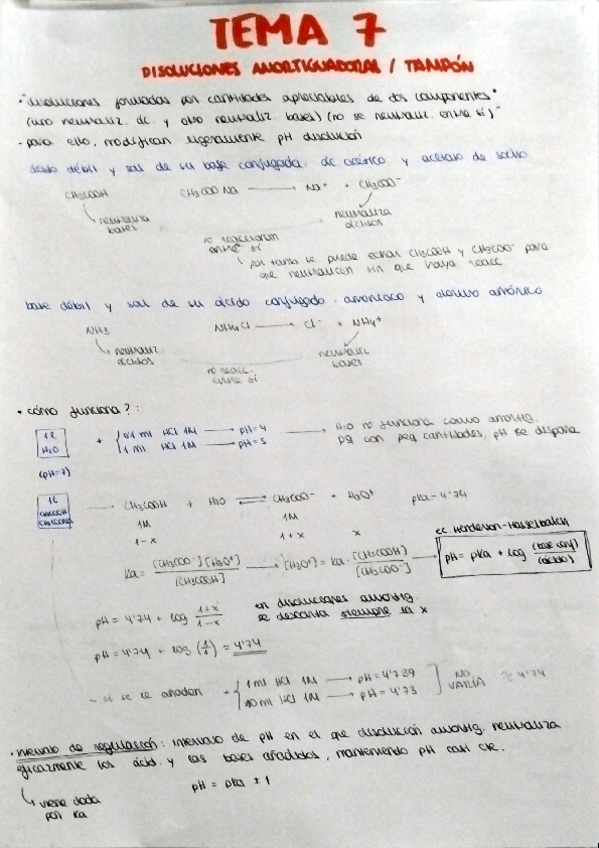 TEMA 7
DISOLUCIONES AMORTIGUADORAS / TAMPÓN
• "disoluciones formadas por cantidades apreciables de dos componentes"
(uno neutraliz. ác. y otro neutraliz. bases) (no se neutraliz. entre sí)
- para ello, modifican ligeramente pH disolución
ácido débil y sal de su base conjugada: ác acético y acetato de sodio
CH3COOH CH3COONa → Na+ + CH3COO-
neutraliza bases neutraliza ácidos
no reaccionan entre sí
por tanto se puede echar CH3COOH y CH3COO- para
que neutralicen sin que haya reacc
base débil y sal de su ácido conjugado: amoniaco y cloruro amónico
NH3 NH4Cl → Cl- + NH4+
neutraliz. ácidos neutraliz bases
no reacc. entre sí
• cómo funciona?:
1L H2O + { 0'1 ml HCl 1M → pH=4 → H2O no funciona como amortig.
1 ml HCl 1M → pH=5 pq con peq cantidades, pH se dispara
(pH=7)
1L CH3COOH CH3COONa → CH3COOH + H2O ⇌ CH3COO- + H3O+ pKa = 4'74
1M 1M
1-x 1+x x
ec. Henderson-Hasselbalch
Ka = [CH3COO-][H3O+] / [CH3COOH] → [H3O+] = Ka · [CH3COOH] / [CH3COO-] → pH = pKa + log (base conj) / (ácido)
pH = 4'74 + log 1+x / 1-x en disoluciones amortig. se descarta siempre la x
pH = 4'74 + log (1/1) = 4'74
- si se le añaden + { 1 ml HCl 1M → pH = 4'739 ] NO VARÍA ≈ 4'74
10 ml HCl 1M → pH = 4'73
• intervalo de regulación: intervalo de pH en el que disolución amortig. neutraliza
eficazmente los ácid. y las bases añadidos, manteniendo pH casi cte.
viene dada por Ka pH = pKa ± 1